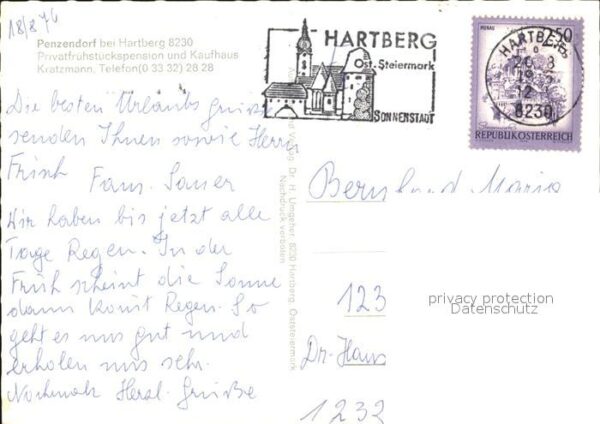 18/8 76
Penzendorf bei Hartberg 8230
Privatfrühstückspension und Kaufhaus
Kratzmann, Telefon (0 33 32) 28 28
HARTBERG
Ost-Steiermark
SONNENSTADT
2.50
MURAU
REPUBLIK ÖSTERREICH
HARTBERG
8230
Die besten Urlaubs grüße
senden Ihnen sowie Herrn
Frisch Fam. Sauer
Wir haben bis jetzt alle
Tage Regen. In der
Früh scheint die Sonne
dann komt Regen. So
geht es uns gut und
erholen uns sehr.
Nochmals Herzl. Grüße
Verlag Dr. H. Umgeher, 8230 Hartberg, Oststeiermark
Nachdruck verboten
123
privacy protection
Datenschutz
Dr. Hans
1232